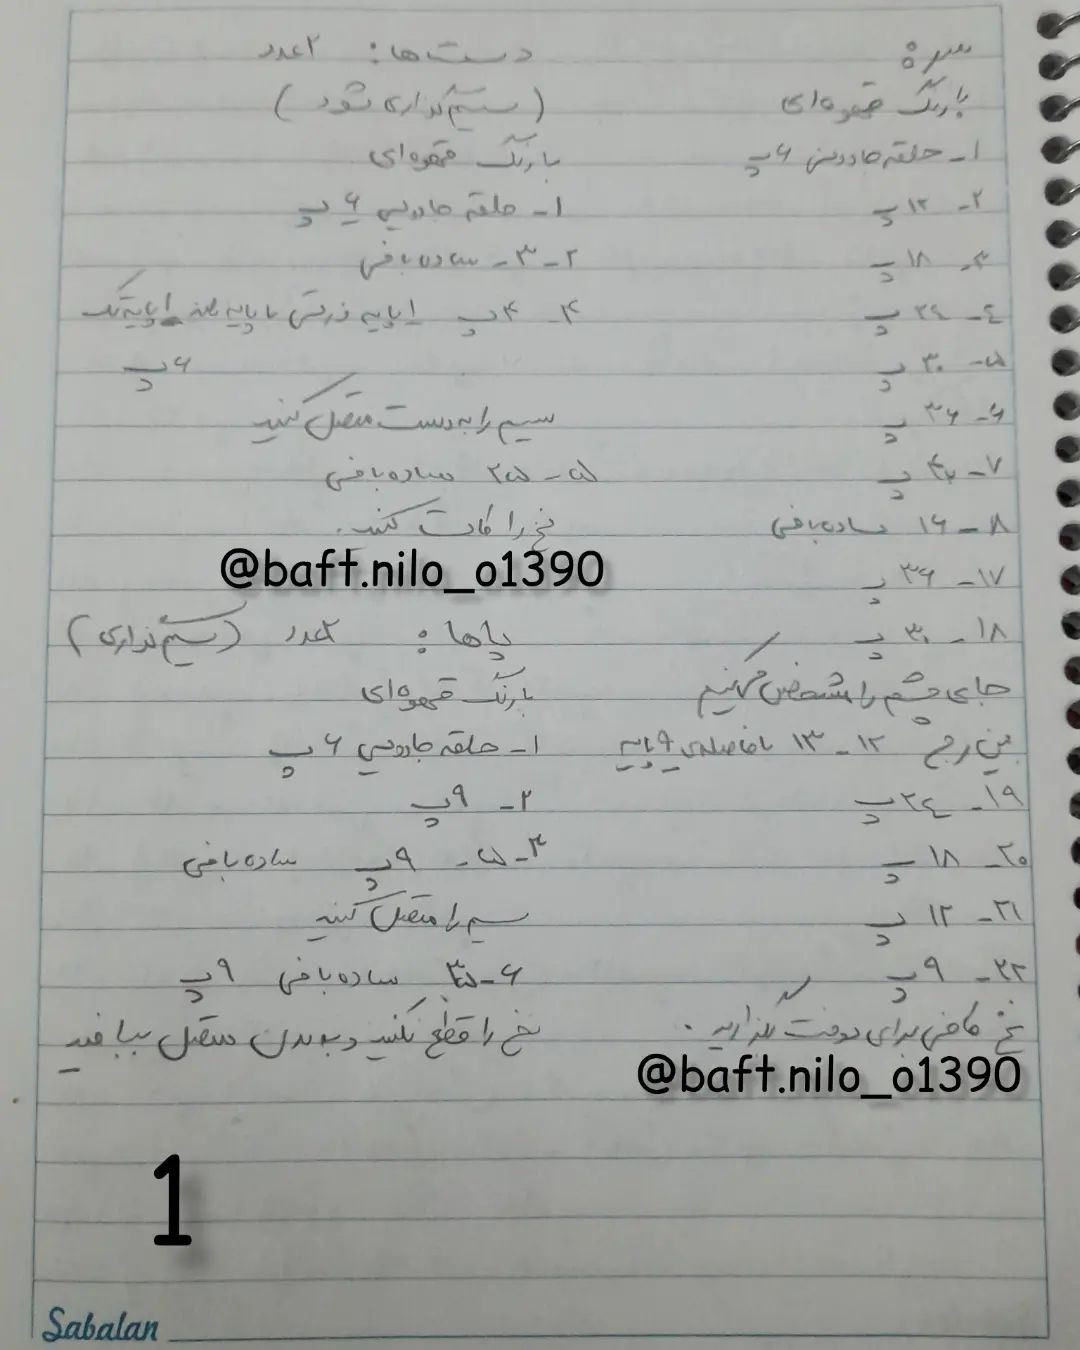 سر:
با رنگ قهوه‌ای
۱- حلقه جادویی ۶پ
۲- ۱۲ پ
۳- ۱۸ پ
٤- ۲٤ پ
۵- ۳۰ پ
۶- ۳۶ پ
۷- ۴۲ پ
۸ - ۱۶ ساده بافی
۱۷- ۳۶ پ
۱۸- ۳۰ پ
جای چشم را مشخص می‌کنیم
بین رج ۱۲ - ۱۳ با فاصله‌ی ۹ پایه
۱۹- ۲٤ پ
۲۰- ۱۸ پ
۲۱- ۱۲ پ
۲۲- ۹ پ
نخ کافی برای دوخت بگذارید.
@baft.nilo_o1390
دست ها: ۲عدد
(سیم گذاری شود)
با رنگ قهوه‌ای
۱- حلقه جادویی ۶ پ
۲-۳- ساده بافی
۴- ۴پ ۱پایه پایه ۱پایه تک
۶پ
سیم را به دست متصل کنید
۵ - ۲۵ ساده بافی
نخ را کات کنید.
@baft.nilo_o1390
پاها: ۲عدد (سیم گذاری)
با رنگ قهوه‌ای
۱- حلقه جادویی ۶ پ
۲- ۹پ
۳-۵- ۹پ ساده بافی
سیم را متصل کنید
۶-۳۵ ساده بافی ۹پ
نخ را قطع نکنید و به بدن متصل ببافید
1
Sabalan